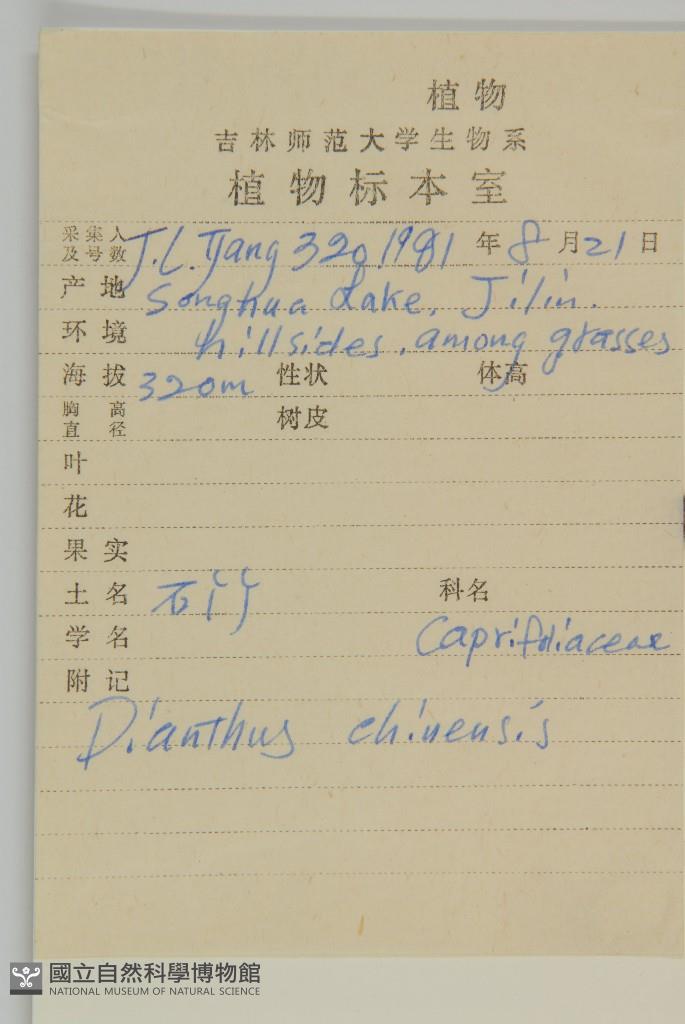 植物
吉林师范大学生物系
植物标本室
采集人及号数 J.L. Tjang 320 1981 年 8 月 21 日
产地 Songhua Lake, Jilin.
环境 hillsides, among grasses
海拔 320m 性状 体高
胸高直径 树皮
叶
花
果实
土名 石竹 科名
学名 Caprifoliaceae
附记
Dianthus chinensis
國立自然科學博物館
NATIONAL MUSEUM OF NATURAL SCIENCE